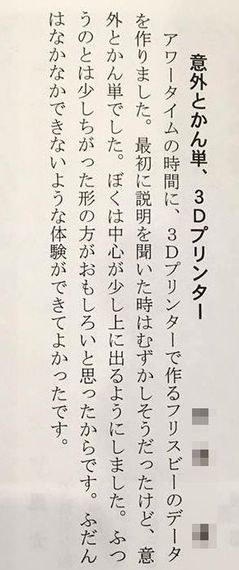 意外とかん単、３Ｄプリンター
アワータイムの時間に、３Ｄプリンターで作るフリスビーのデータ
を作りました。最初に説明を聞いた時はむずかしそうだったけど、意
外とかん単でした。ぼくは中心が少し上に出るようにしました。ふつ
うのとは少しちがった形の方がおもしろいと思ったからです。ふだん
はなかなかできないような体験ができてよかったです。